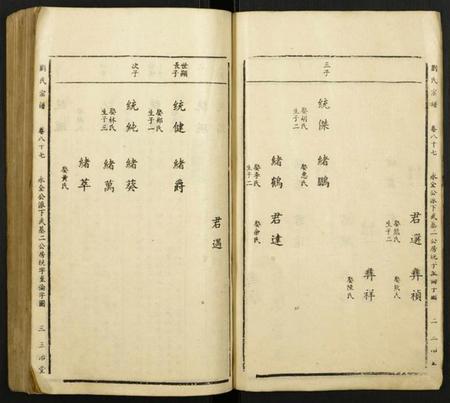 劉氏宗譜
卷八十七
三子
統傑
娶胡氏
生子二
緒鵬
娶惠氏
君選
娶熊氏
生子二
彝禎
彝祥
娶陳氏
緒鶴
娶李氏
生子二
君達
娶余氏
君遇
世顯
長子
統健
娶鄭氏
生子一
緒爵
次子
統純
娶林氏
生子三
緒葵
緒萬
緒萃
娶黃氏
劉氏宗譜
卷八十七
永全公派下武基二公房統字至倫字圖
三
三治堂